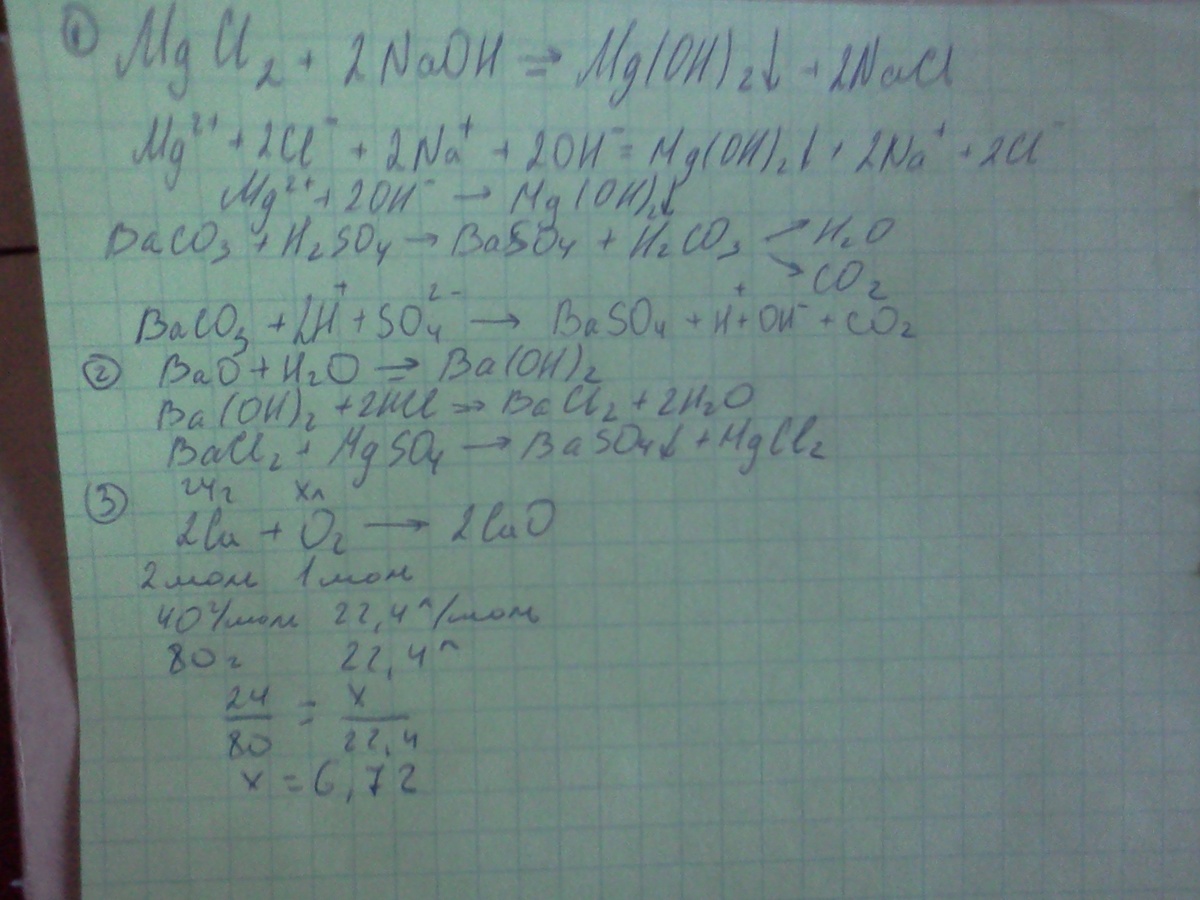 ① MgCl₂ + 2NaOH ⇒ Mg(OH)₂↓ + 2NaCl
Mg²⁺ + 2Cl⁻ + 2Na⁺ + 2OH⁻ = Mg(OH)₂↓ + 2Na⁺ + 2Cl⁻
Mg²⁺ + 2OH⁻ → Mg(OH)₂↓
BaCO₃ + H₂SO₄ → BaSO₄ + H₂CO₃ ↗ H₂O
↘ CO₂
BaCO₃ + 2H⁺ + SO₄²⁻ → BaSO₄ + H⁺ + OH⁻ + CO₂
② BaO + H₂O → Ba(OH)₂
Ba(OH)₂ + 2HCl → BaCl₂ + 2H₂O
BaCl₂ + MgSO₄ → BaSO₄↓ + MgCl₂
③ 24г xл
2Ca + O₂ → 2CaO
2моль 1моль
40г/моль 22,4л/моль
80г 22,4л
24/80 = x/22,4
x = 6,72